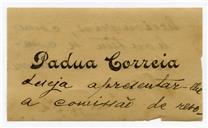 Padua Correia
deseja apresentar-lhe
a comissão de